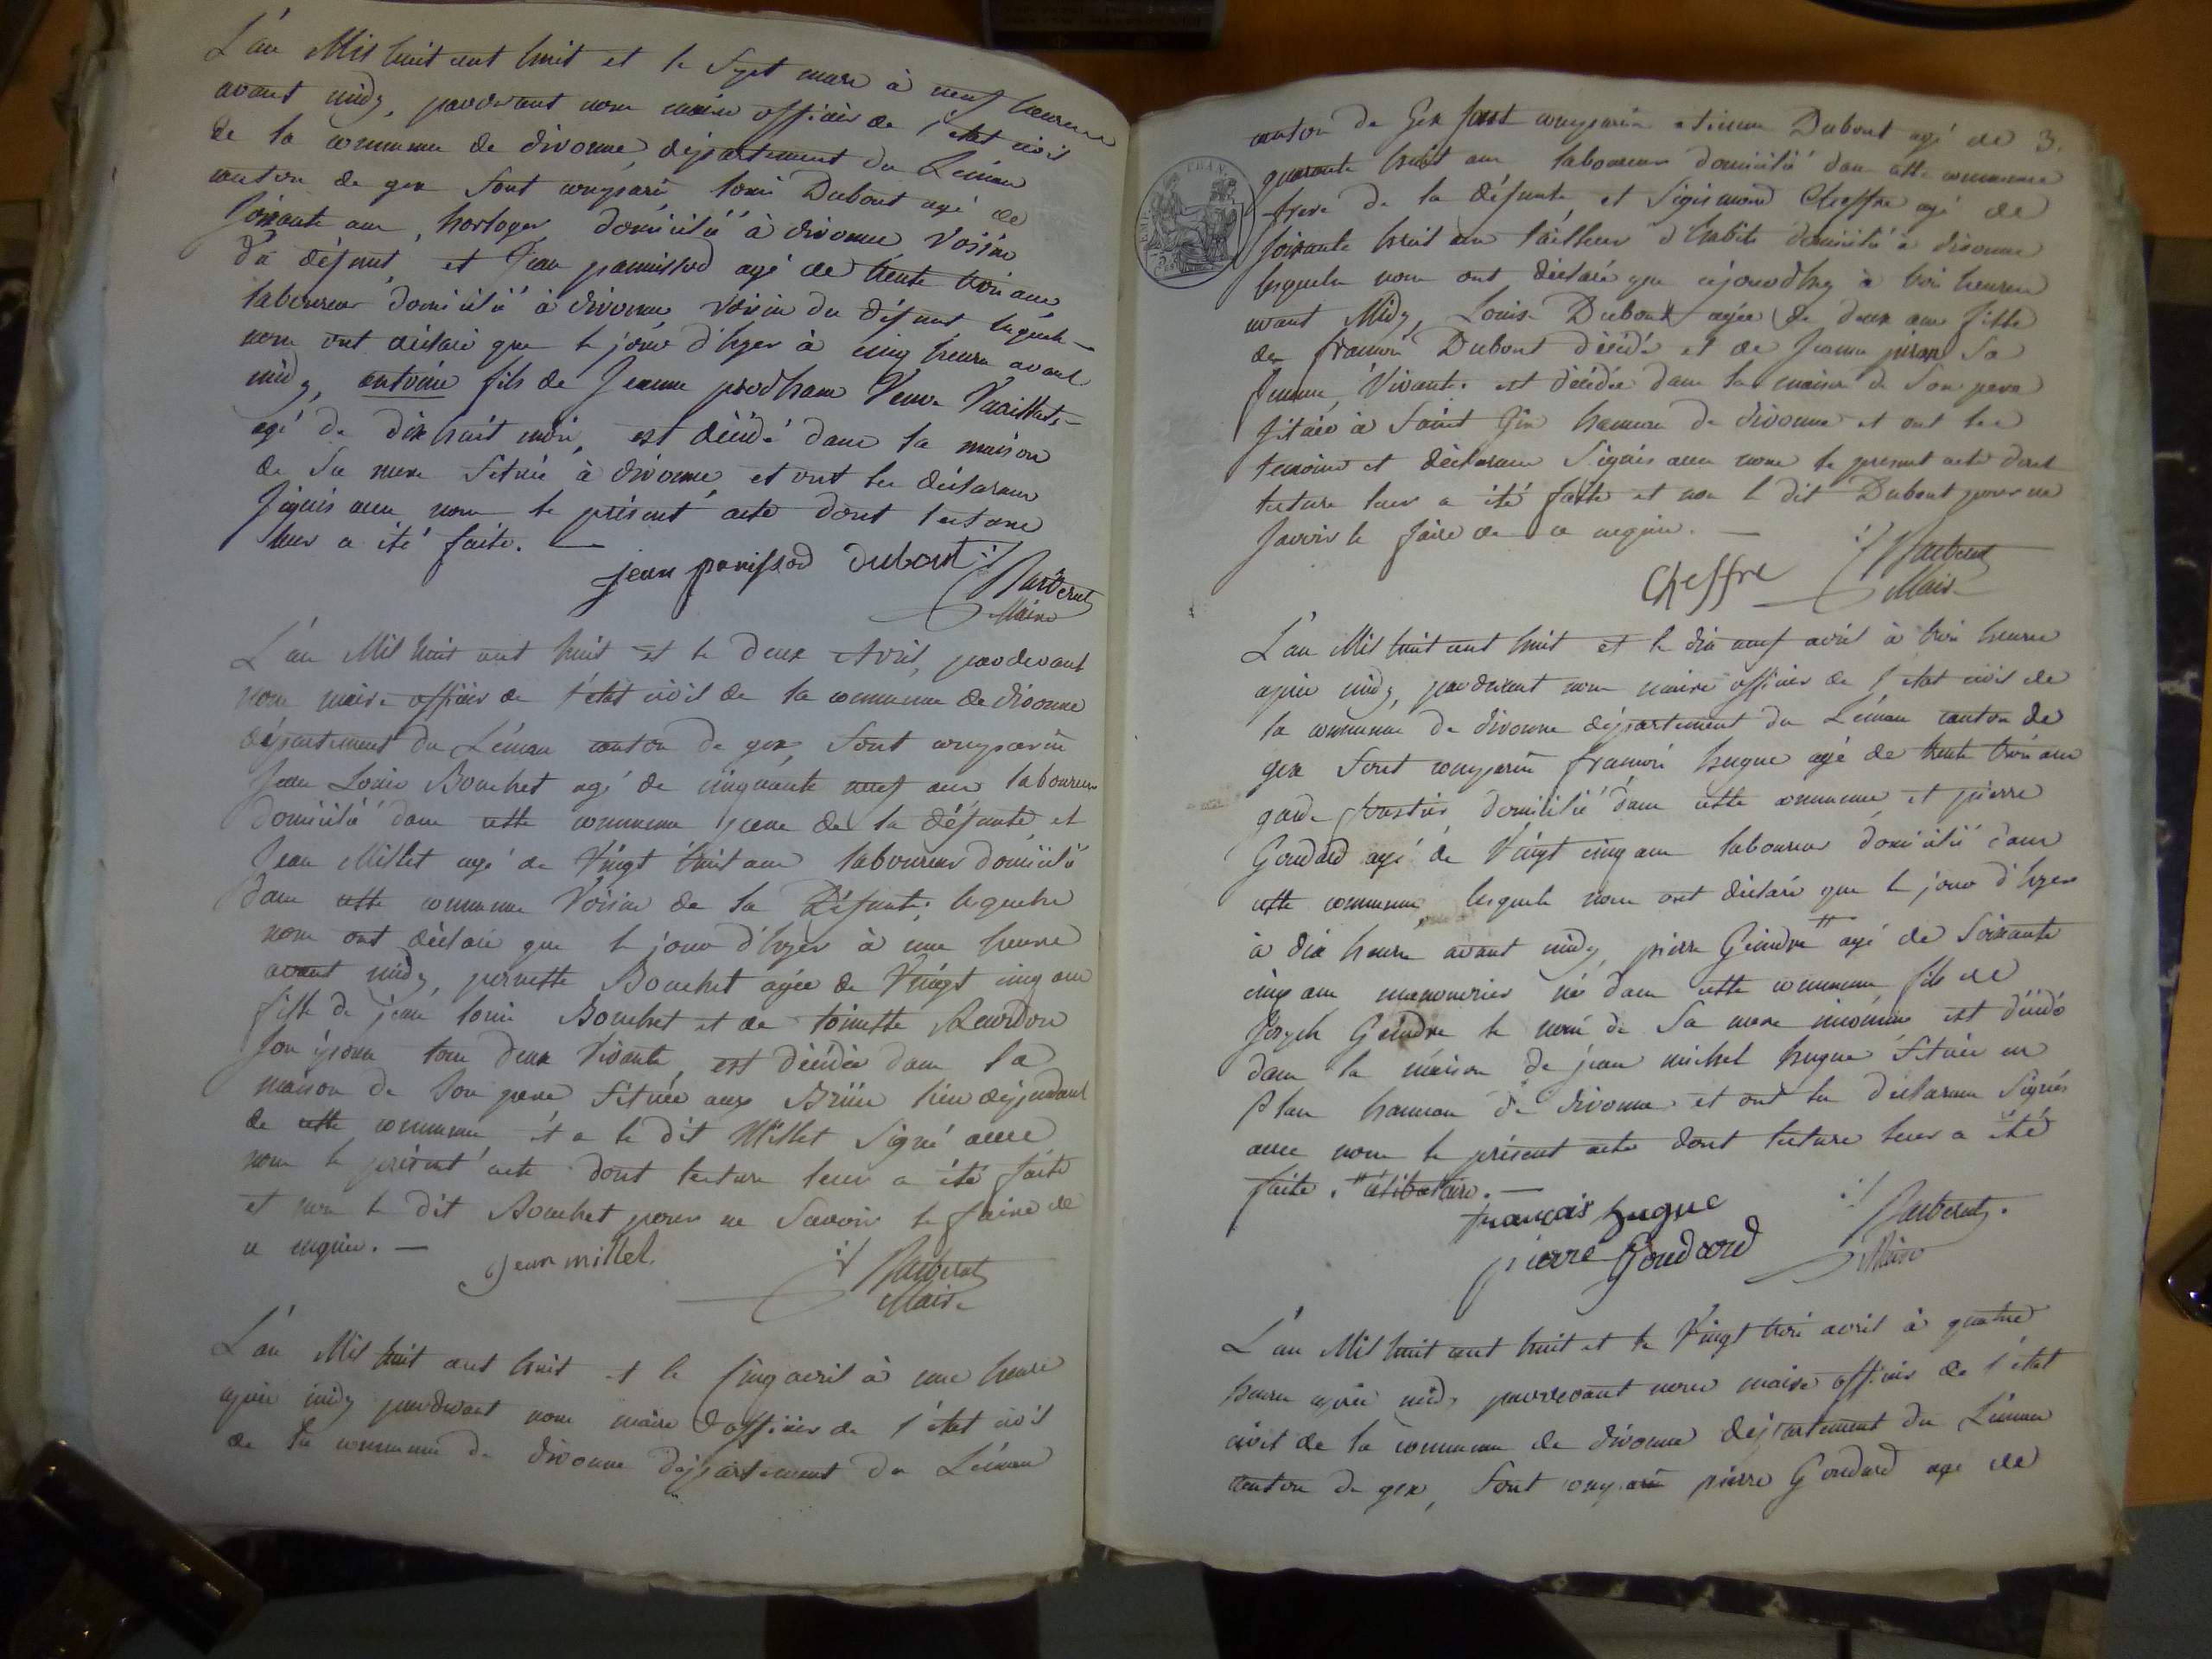 L'an Mil huit cent huit et le sept mars à neuf heures
avant midy, pardevant nous maire officier de l'état civil
de la commune de divonne, département du Léman
canton de gex sont comparu louis Dubout agé de
soixante ans, horloger domicilié à divonne voisin
du défunt, et Jean panissod agé de trente trois ans
laboureur domicilié à divonne voisin du défunt, lesquels
nous ont déclaré que le jour d'hyer à cinq heures avant
midy, antoine fils de Jeanne prodham Veuve
agé de dix huit mois, est décédé dans la maison
de sa mere située à divonne, et ont les déclarans
signés avec nous le présent acte dont lecture
leur a été faite. —
jean panissod dubout Barberat
Maire
L'an Mil huit cent huit et le deux Avril, pardevant
nous maire officier de l'état civil de la commune de divonne
département du Léman canton de gex, sont comparus
Jean Louis Bouchet agé de cinquante neuf ans laboureur
domicilié dans cette commune pere de la défunte, et
Jean Millet agé de Vingt huit ans laboureur domicilié
dans cette commune Voisin de la Défunte, lesquels
nous ont déclaré que le jour d'hyer à une heure
avant midy, pernette Bouchet agée de Vingt cinq ans
fille de jean louis Bouchet et de toinette
son épouse tous deux Vivants, est décédée dans la
maison de son pere située aux lieu dépendant
de cette commune, et a le dit Millet signé avec
nous le présent acte dont lecture leur a été faite
et non le dit Bouchet pour ne savoir le faire de
ce requis. —
Jean millet. Barberat
Maire
L'an Mil huit cent huit et le cinq avril à une heure
après midy pardevant nous maire & officier de l'état civil
de la commune de divonne département du Léman
3.
canton de Gex sont comparus etienne Dubout agé de
quarante huit ans laboureur domicilié dans cette commune
frere de la défunte, et Sigismond Cheffre agé de
soixante huit ans tailleur d'habits domicilié à divonne
lesquels nous ont déclaré que cejourdhuy à trois heures
avant Midy, Louise Dubout agée de deux ans fille
de françois Dubout décédé et de Jeanne sa
femme, Vivante. est décédée dans la maison de son pere
située à Saint Gix hameau de divonne et ont les
temoins et déclarans signés avec nous le present acte dont
lecture leur a été faite et non le dit Dubout pour ne
savoir le faire de ce requis. —
Cheffre Barberat
Maire
L'an Mil huit cent huit et le dix neuf avril à trois heures
après midy, pardevant nous maire officier de l'état civil de
la commune de divonne département du Léman canton de
gex sont comparus françois hugue agé de trente trois ans
garde forestier domicilié dans cette commune, et pierre
Goudard agé de Vingt cinq ans laboureur domicilié dans
cette commune, lesquels nous ont déclaré que le jour d'hyer
à dix heures avant midy, pierre Geindre " agé de soixante
cinq ans manouvrier né dans cette commune, fils de
Joseph Geindre le nom de sa mere inconnue est décédé
dans la maison de jean michel hugue située en
Plan hameau de divonne. et ont les déclarans signés
avec nous le présent acte dont lecture leur a été
faite. " célibataire. —
françois hugue Barberat.
pierre Goudard Maire
L'an Mil huit cent huit et le Vingt trois avril à quatre
heures après midy pardevant nous maire officier de l'état
civil de la commune de divonne département du Léman
canton de gex, sont comparus pierre Goudard agé de